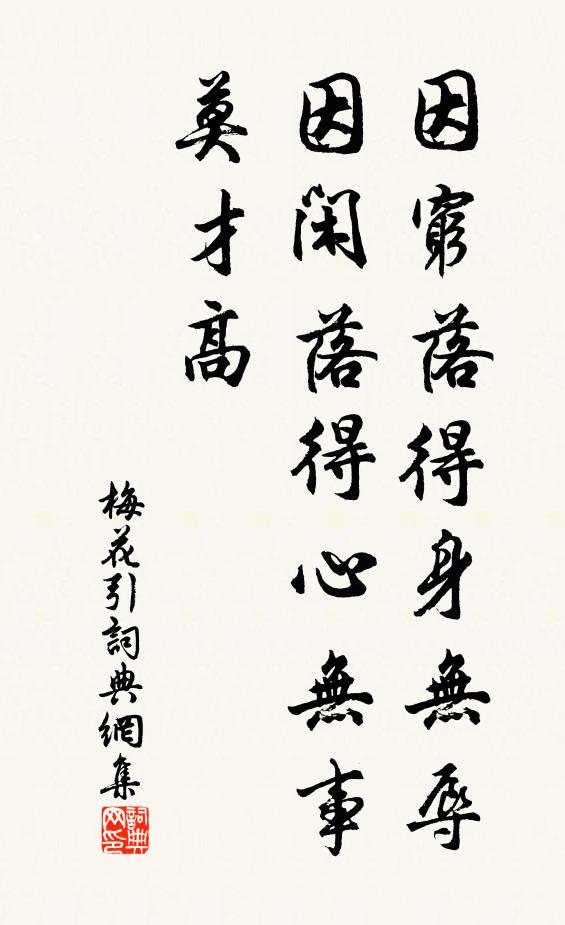 因窮落得身無辱
因閑落得心無事
莫才高
梅花引詞典網集
詞典
网印